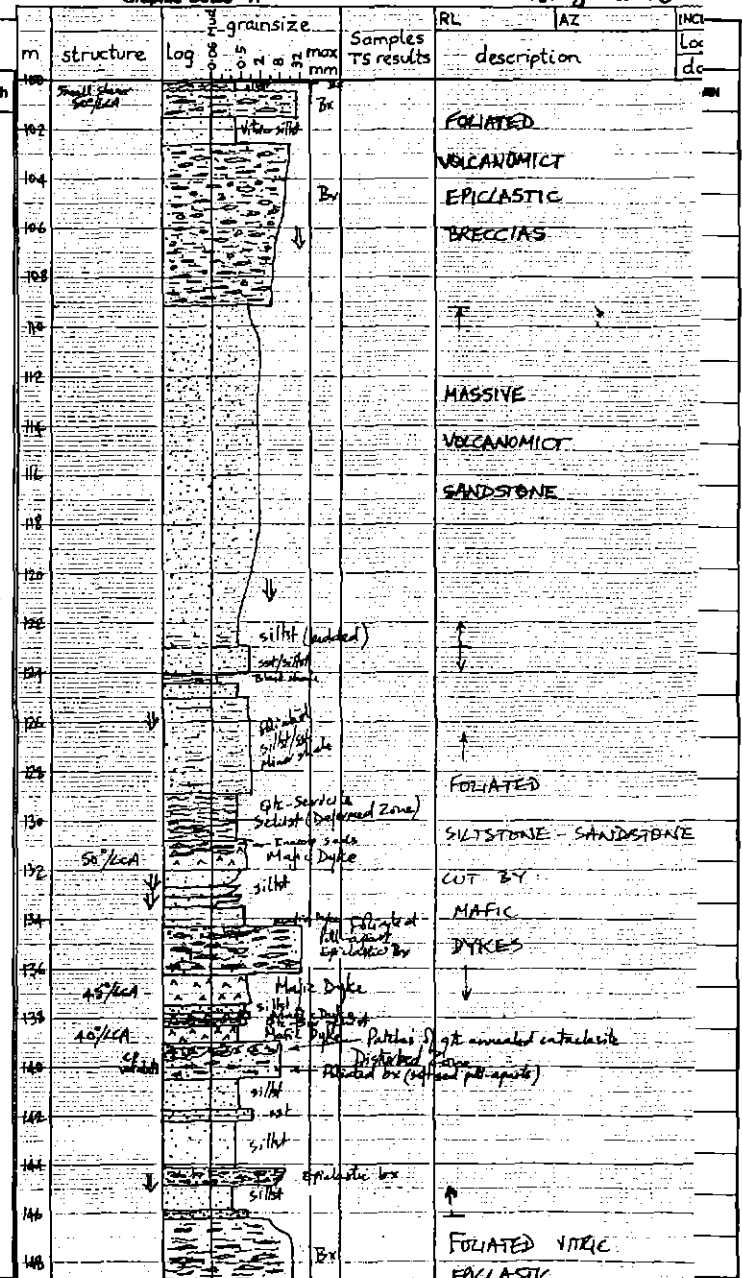 grainsize
RL AZ INCL
m structure Log 0.06 Mud 0.5 2 8 32 max mm Samples TS results description
100 Small shear 50°/LCA
Bx
102 FOLIATED
VOLCANOMICT
104 Bx EPICLASTIC
106 BRECCIAS
108
110
112 MASSIVE
114 VOLCANOMICT
116 SANDSTONE
118
120
122 siltst (bedded)
sst/siltst
124 Black shale
126 foliated
siltst/sst
minor shale
128 FOLIATED
Qtz-Sericite
130 Schist (Deformed Zone)
SILTSTONE - SANDSTONE
50°/LCA Mafic Dyke
132 siltst CUT BY
134 MAFIC
Foliated
pull-apart
Epiclastic Bx
DYKES
136
45°/LCA Mafic Dyke
siltst
138
40°/LCA Mafic Dyke Patches of qtz annealed cataclasite
Disturbed Zone
140 variable Foliated bx (pull-aparts)
siltst
142 sst
siltst
144 Epiclastic bx
siltst
146
FOLIATED VITRIC
148 Bx EPICLASTIC